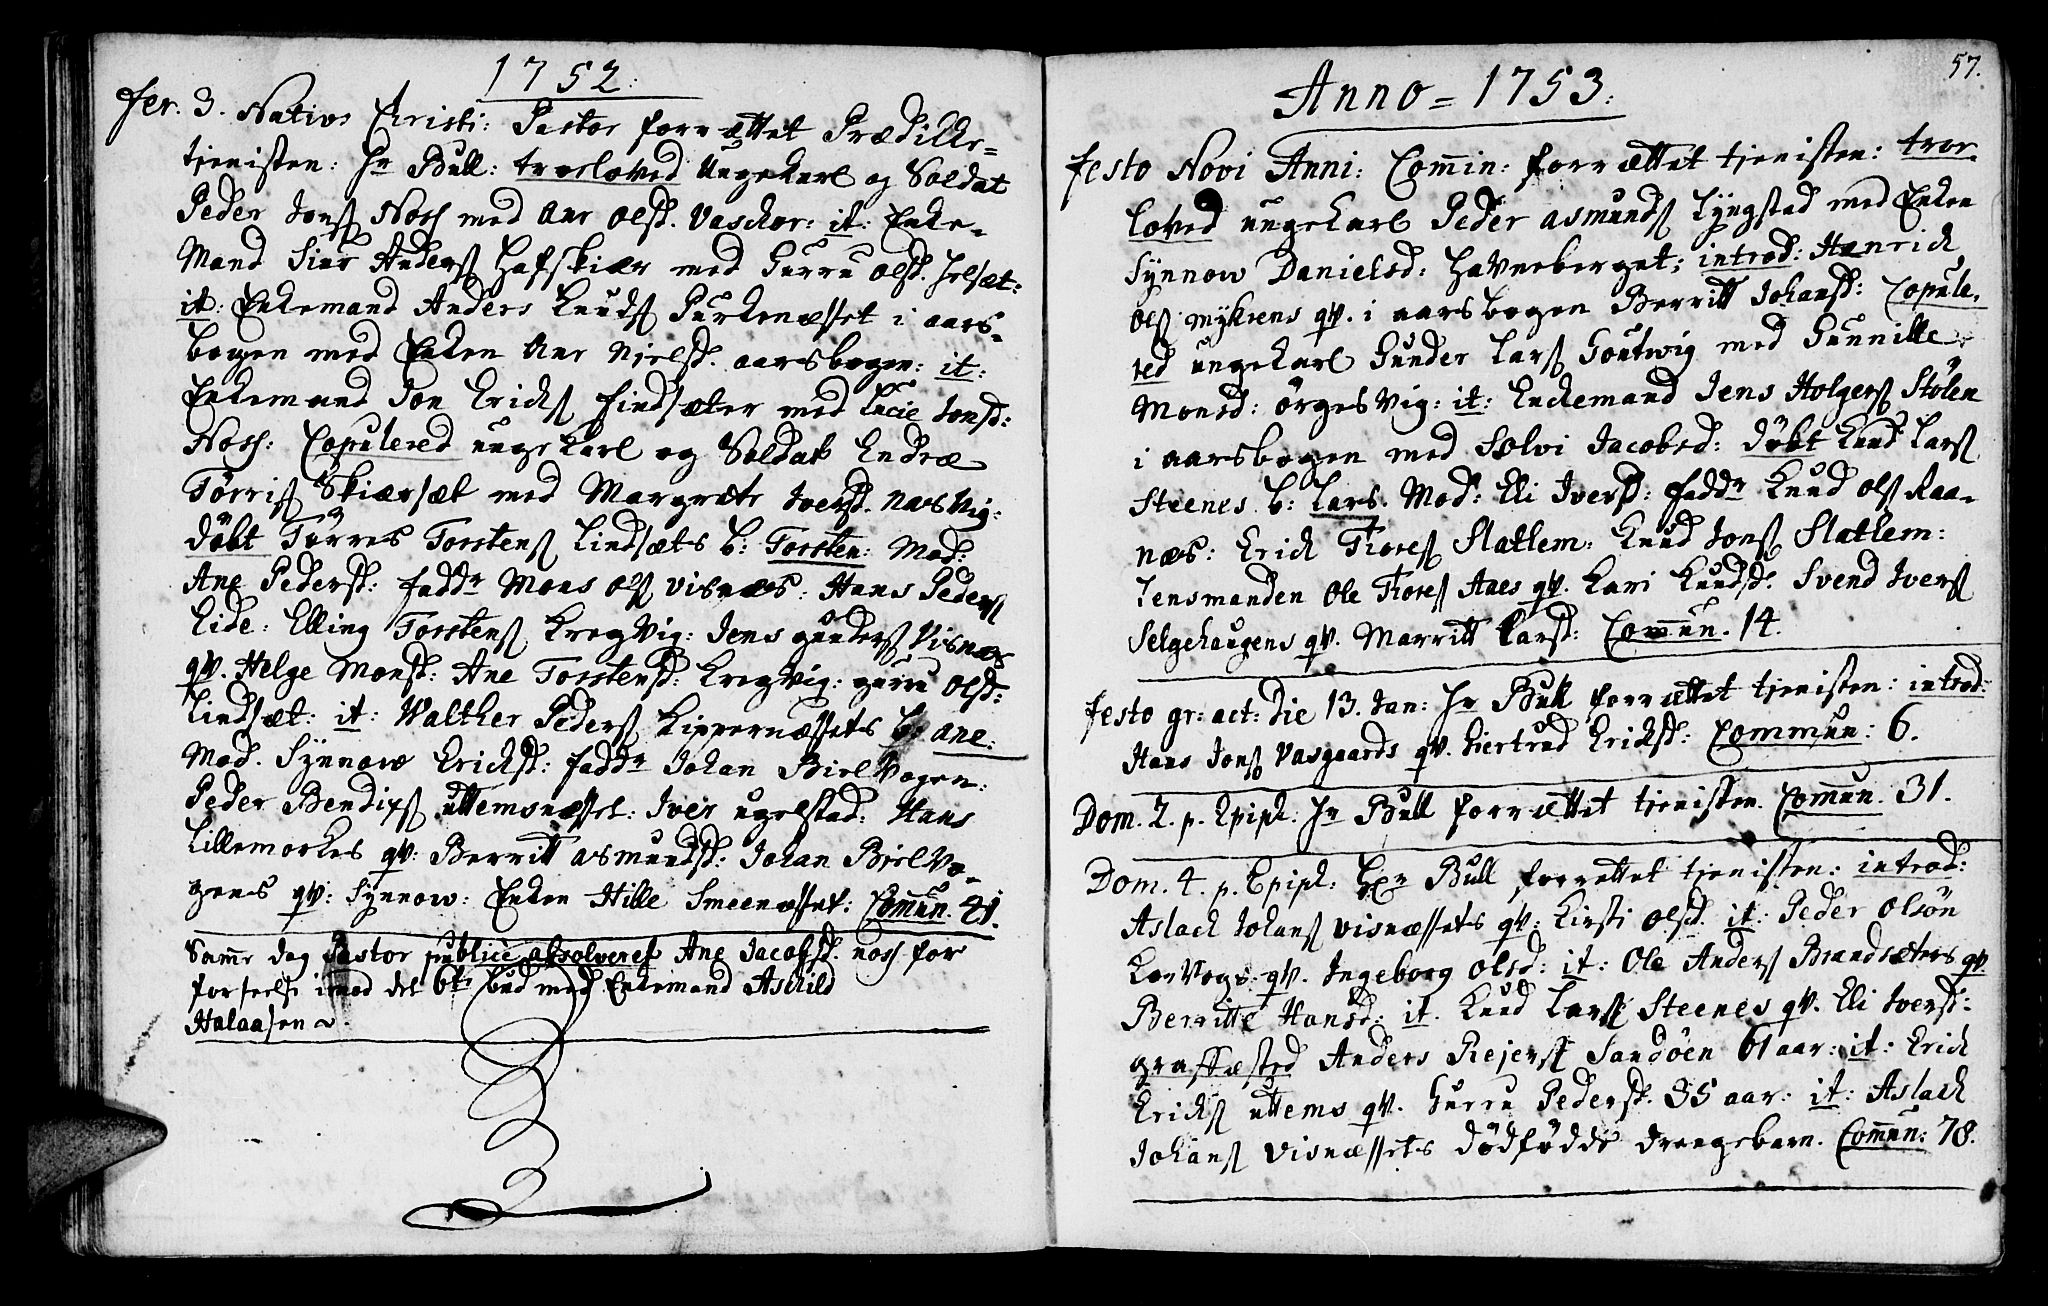 1752:
fer. 3. Nativs Christi: Pastor forrættet Prædicke-
tjenisten: Hr Bull: troeloved Ungekarl og Soldat
Peder Jons Noss med Ane Olsd. Vaschor: it: Enke-
Mand Siur Anders Hafskiær med Gurru Olsd. Helsæt:
it: Enkemand Anders Knuds Purkenæsset i aars-
bogen med Enken Ane Nielsd. aarsbogen: it:
Enkemand Jon Ericks Findsæter med Lucie Jonsd:
Noss: Copulered ungekarl og Soldat Endræ
Törris Skiærsæt med Margrete Iversd. Narvig:
Döbt Törres Torstens Lindsæts b: Torsten: Mod:
Ane Pedersd: faddr Mons Ols Visnæs: Hans Peders
Eide: Elling Torstens Kregvig: Jens Gunders Visnæs
qv. Helge Monsd: Ane Torstensd: Kregvig: gurru Olsd:
Lindsæt: it: Walther Peders Kippernæssets b: ane:
Mod. Synnow Ericksd: faddr Johan Bielvogen:
Peder Bendixs uttemsnæsset: Iver ugelstad: Hans
Lillemorkes qv: Berritt asmundsd: Johan Bielvo-
gens qv: Synnow: Enken Hille Smeenæsset: Comun. 41.
Samme dag Pastor publice absolveret Ane Jacobsd. noss for
forseelse imod det 6te bud med Enkemand Aschild
Halaasen
57.
Anno = 1753:
festo Novi Anni: Comin: forrættet tjenisten: troe-
loved ungekarl Peder asmunds Lyngstad med Enken
Synnow Danielsd: Havneberget; introd: Henrich
Ols myhrens qv. i aarsbogen Berritt Johansd: Copule-
red ungekarl Gunder Lars Goutwig med Gunnille
Monsd: örgesvig: it: Enckemand Jens Holgers Stölen
i aarsbogen med Solvi Jacobsd: döbt Knud Lars
Steenes b: Lars. Mod: Eli Iversd: faddr Knud Ols Raa-
næs: Erick Tores Slatlem: Knud Jons Slatlem:
Lensmanden Ole Tores Aaes qv. Kari Knudsd. Svend Ivers
Selgehaugens qv. Marritt Larsd: Commun. 14.
festo gr: act: die 13. Jan: Hr Bull forrættet tjenisten: introd:
Hans Jons Vasgaards qv. Giertrud Ericksd: Commun: 6.
Dom. 2. p. Epiph. Hr Bull forrættet tjenisten. Comun. 31.
Dom. 4. p. Epiph: Hr Bull forrettet tjenisten: introd:
Aslach Johans Visnæssets qv: Kirsti Olsd. it: Peder Olsön
Korvogs qv. Ingeborg Olsd: it: Ole Anders Brandsæters qv.
Berritte Hansd: it. Knud Lars Steenes qv. Eli Iversd:
graffæsted Anders Rejers Sandöen 61 aar: it: Erick
Ericks uttems qv. Gurru Pedersd. 35 aar: it: Aslach
Johans Visnæssets dödfödde drengebarn. Comun: 78.